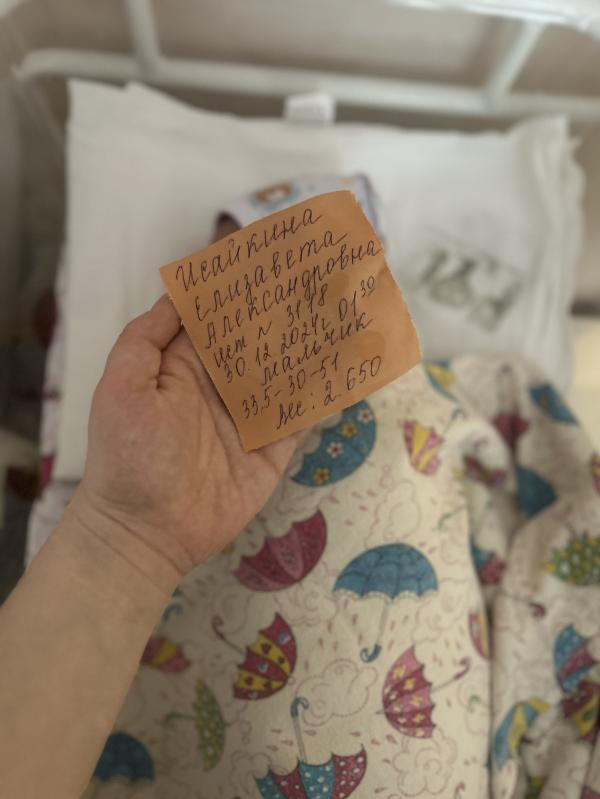 Исайкина
Елизавета
Александровна
ист № 3178
30.12.2024г 01 30
мальчик
33,5-30-51
вес: 2.650